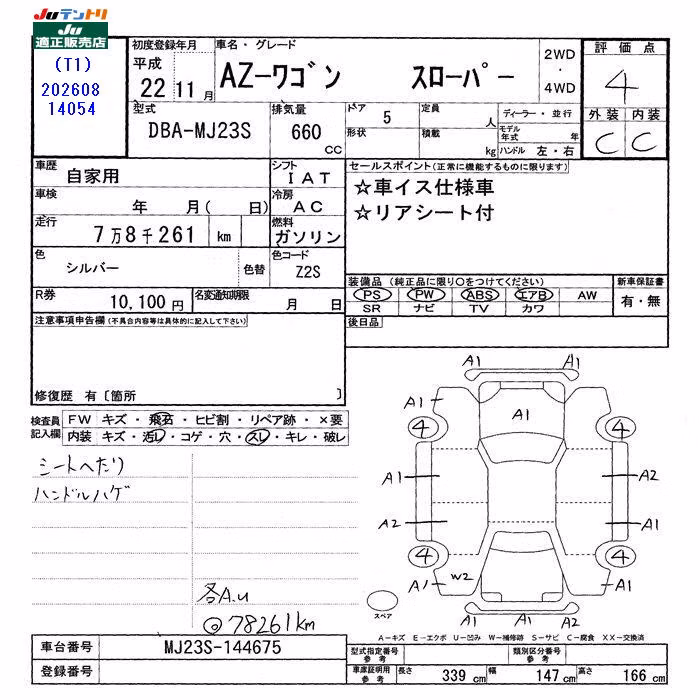 Juテントリ
Ju
適正販売店
(T1)
202608
14054
初度登録年月
平成
22 11月
車名・グレード
AZ-ワゴン スローパー
2WD
・
4WD
評価点
4
外装 内装
C C
型式
DBA-MJ23S
排気量
660
cc
ドア 5
形状
定員 人
積載 kg
ディーラー・並行
モデル年式 年
ハンドル 左・右
車歴
自家用
シフト
IAT
車検
年 月( 日)
冷房
AC
走行
7万8千261 km
燃料
ガソリン
色
シルバー
色替
色コード
Z2S
R券
10,100円
名変通知期限
月 日
セールスポイント(正常に機能するものに限ります)
☆車イス仕様車
☆リアシート付
装備品(純正品に限り○をつけてください)
PS PW ABS エアB AW
SR ナビ TV カワ
新車保証書
有・無
後日品
注意事項申告欄(不具合内容等は具体的に記入して下さい)
修復歴 有〔箇所 〕
検査員
記入欄
FW キズ・飛石・ヒビ割・リペア跡・×要
内装 キズ・汚レ・コゲ・穴・スレ・キレ・破レ
シートへたり
ハンドルハゲ
各A.u
◎78261km
A1 A1
A1 A1 A1
4 4
A1 A2
A2 A1
4 4
A1 W2 A1
A1 A1 A2
スペア
A-キズ E-エクボ U-凹み W-補修跡 S-サビ C-腐食 XX-交換済
車台番号
MJ23S-144675
登録番号
型式指定番号
参考
類別区分番号
参考
車庫証明用
参考
長さ 339cm 幅 147cm 高さ 166cm